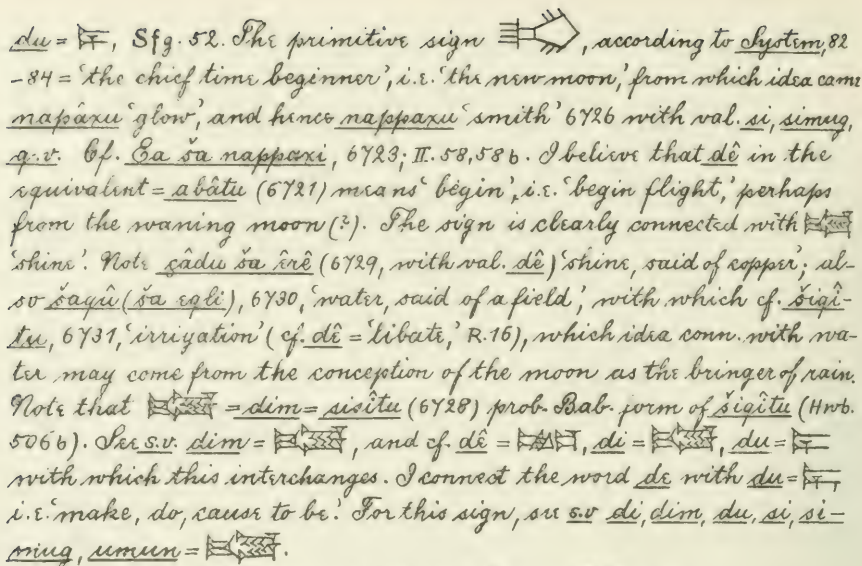 du = , Sfg. 52. The primitive sign , according to System, 82
-84 = 'the chief time beginner', i.e. 'the new moon,' from which idea came
napâxu 'glow', and hence nappaxu 'smith' 6726 with val. si, simug,
q.v. Cf. Ea ša nappaxi, 6723; II. 58, 58 b. I believe that dê in the
equivalent = abâtu (6721) means 'begin', i.e. 'begin flight,' perhaps
from the waning moon (?). The sign is clearly connected with
'shine'. Note çâdu ša êrê (6729, with val. dê) 'shine, said of copper'; al-
so šaqû (ša eqli), 6730, 'water, said of a field', with which cf. šiqî-
tu, 6731, 'irrigation' (cf. dê = 'libate,' R. 16), which idea conn. with wa-
ter may come from the conception of the moon as the bringer of rain.
Note that = dim = sisîtu (6728) prob. Bab. form of šiqîtu (Hwb.
506 b). See s.v. dim = , and cf. dê = , di = , du =
with which this interchanges. I connect the word de with du = ,
i.e. 'make, do, cause to be.' For this sign, see s.v di, dim, du, si, si-
mug, umun = .